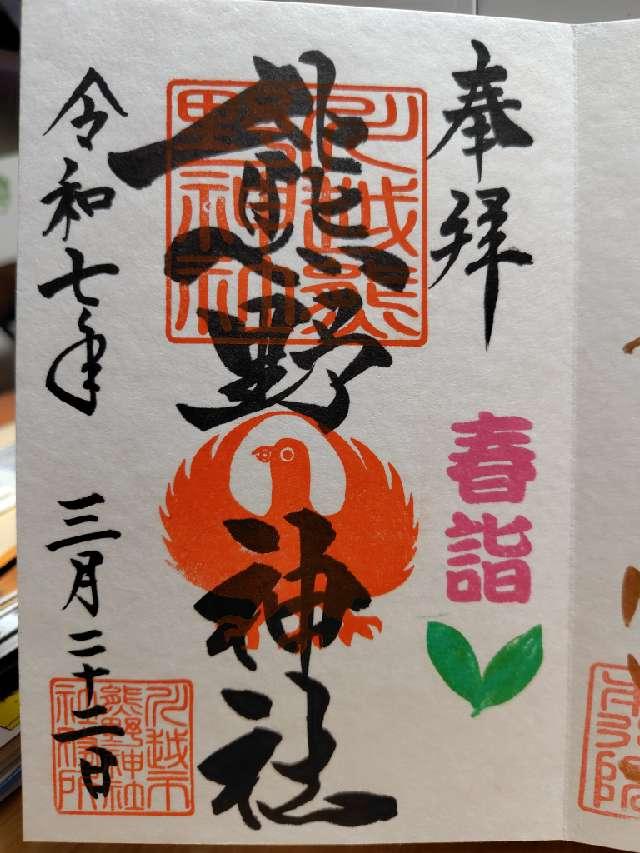 奉拝
春詣
川越熊野神社
熊野神社
令和七年三月二十二日
川越市熊野神社社務所